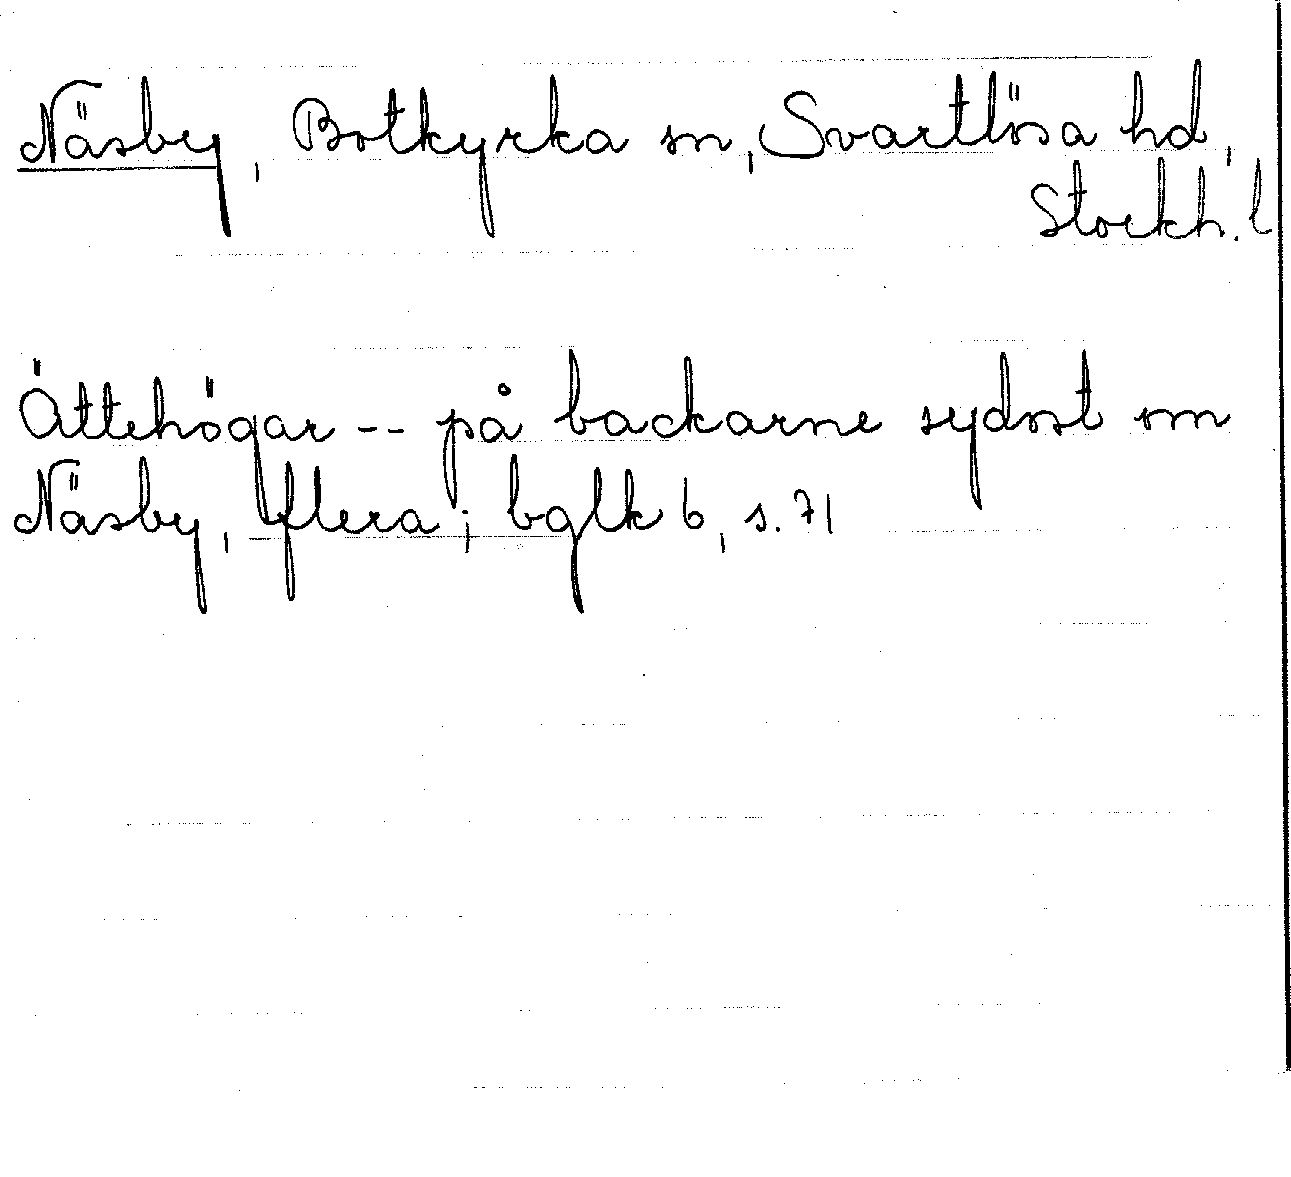 Näsby, Botkyrka sn, Svartlösa hd,
Stockh. l
Ättehögar -- på backarne sydost om
Näsby, flera; bglk 6, s. 71